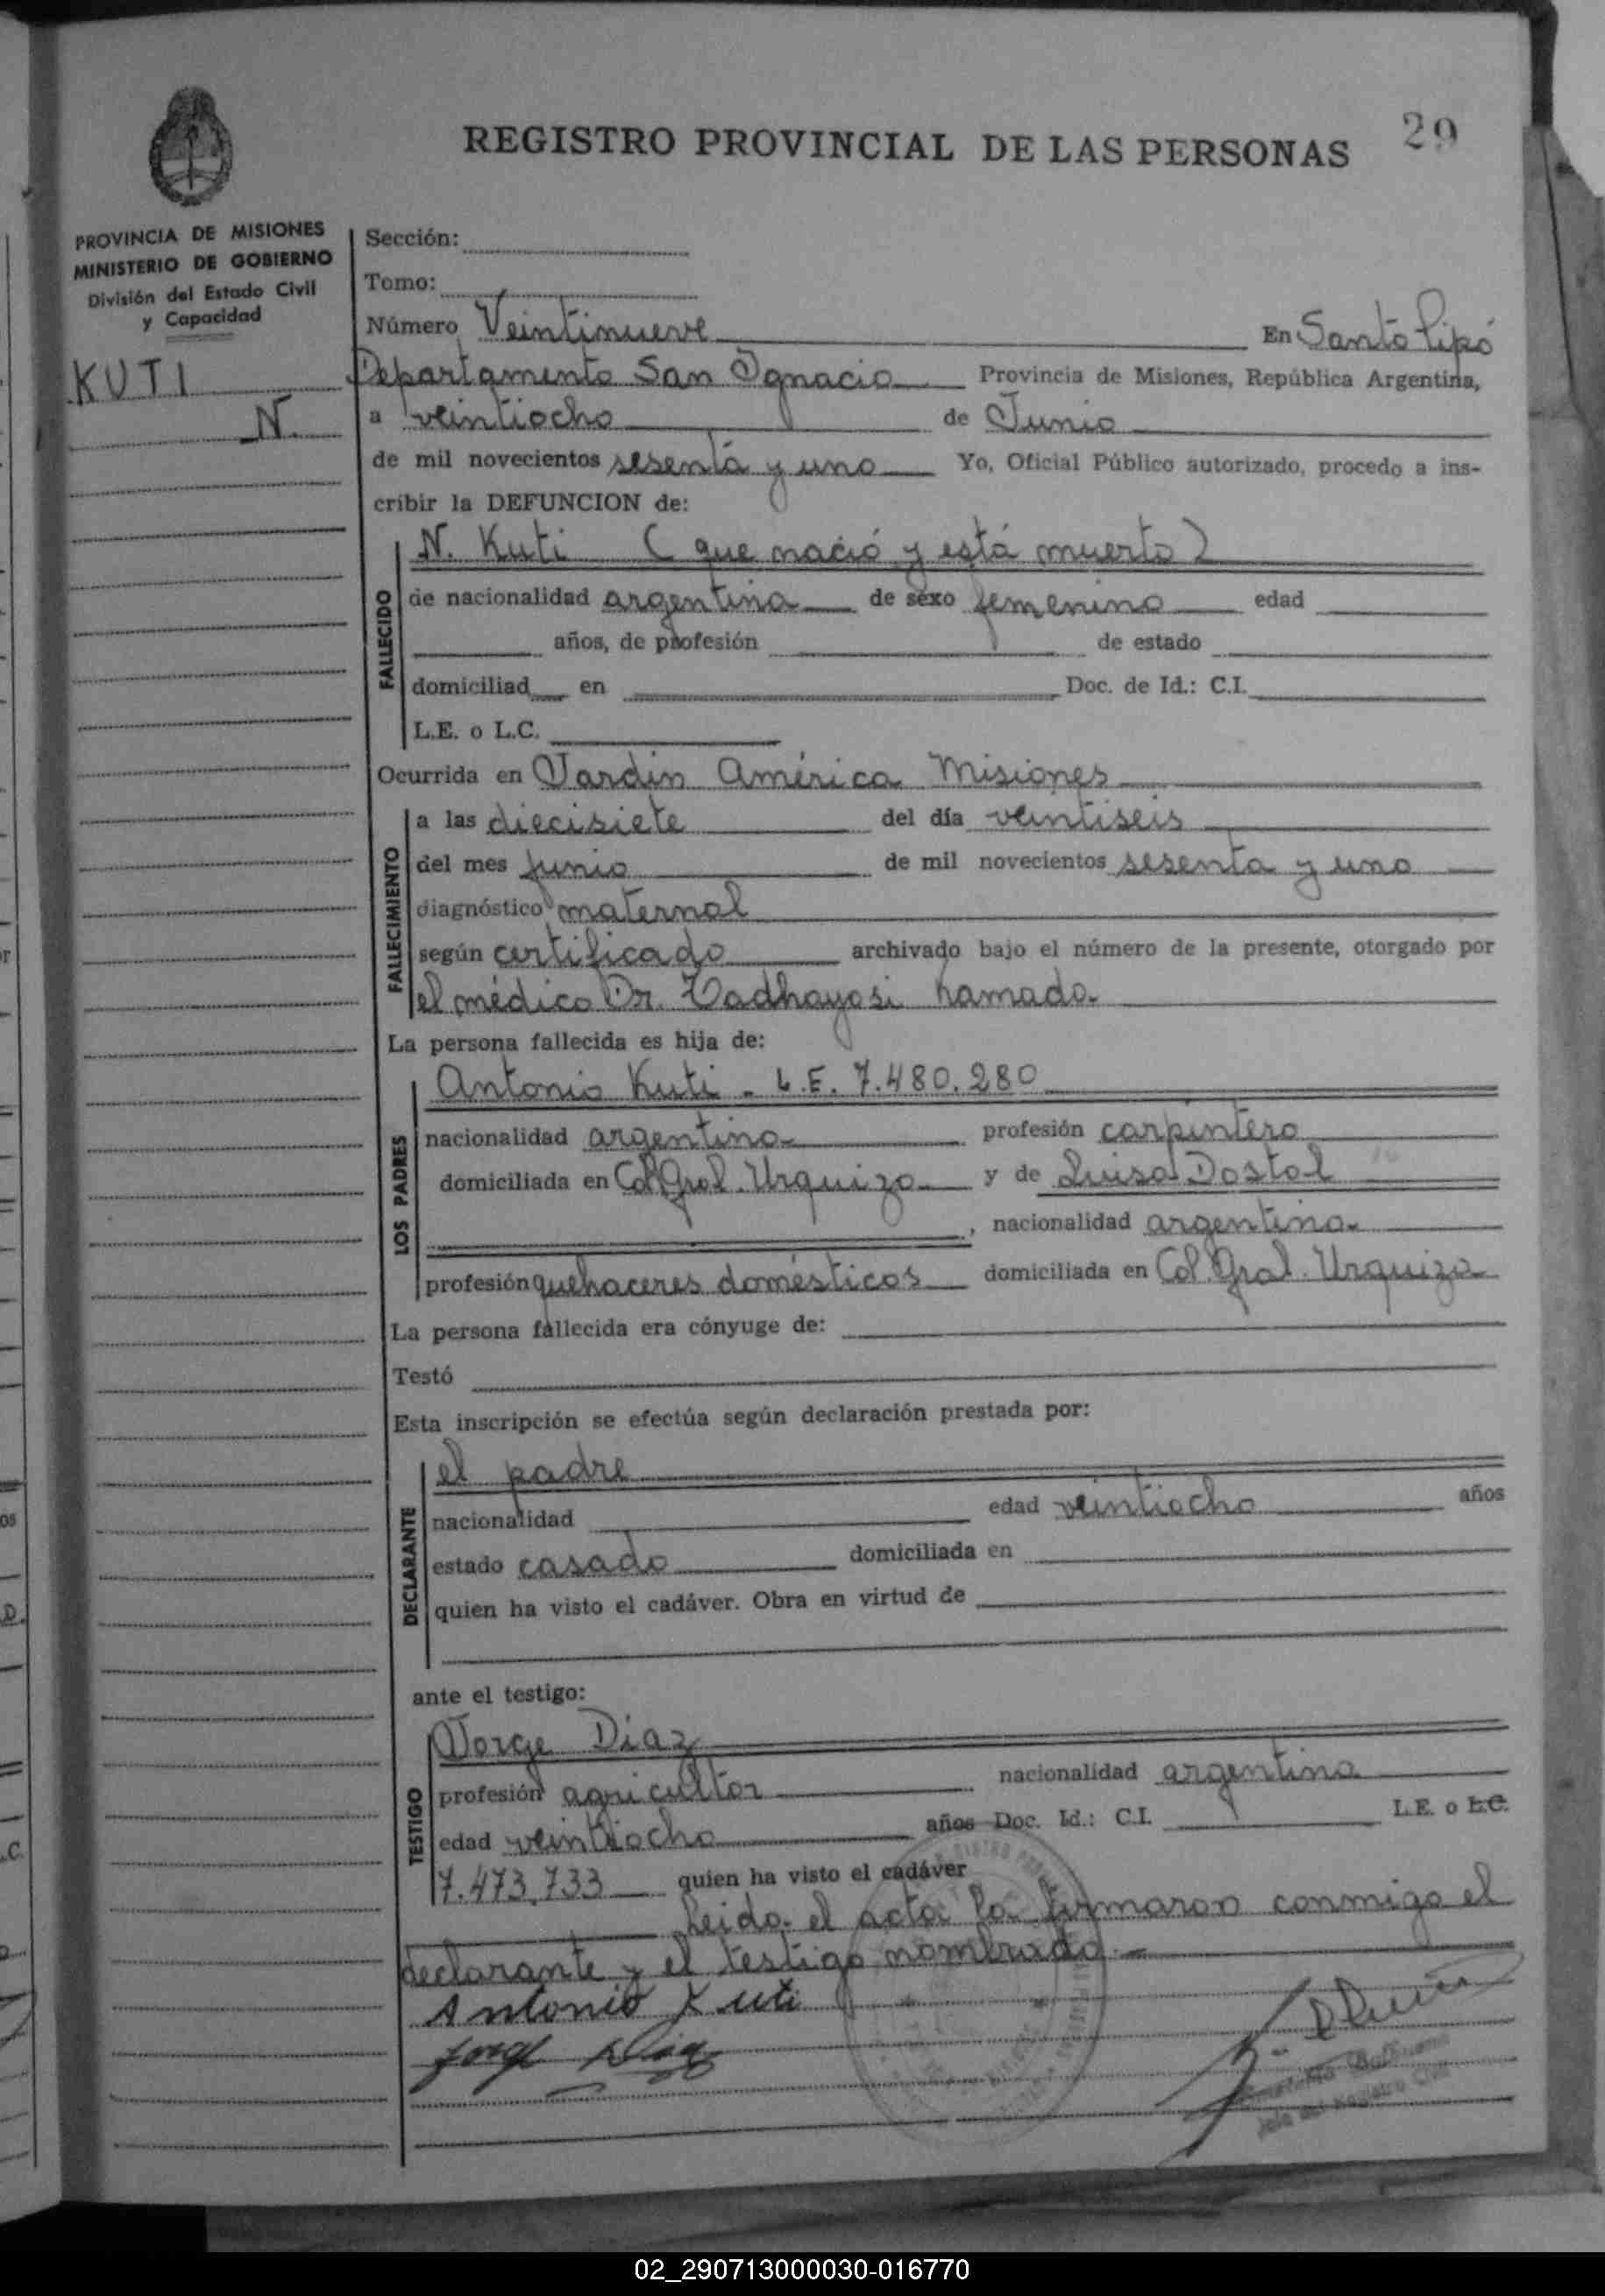 REGISTRO PROVINCIAL DE LAS PERSONAS
29
PROVINCIA DE MISIONES
MINISTERIO DE GOBIERNO
División del Estado Civil
y Capacidad
KUTI
N.
Sección:
Tomo:
Número Veintinueve En Santo Pipó
Departamento San Ignacio Provincia de Misiones, República Argentina,
a veintiocho de Junio
de mil novecientos sesenta y uno Yo, Oficial Público autorizado, procedo a ins-
cribir la DEFUNCION de:
FALLECIDO
N. Kuti (que nació y está muerto)
de nacionalidad argentina de sexo femenino edad
años, de profesión de estado
domiciliad en Doc. de Id.: C.I.
L.E. o L.C.
Ocurrida en Jardín América Misiones
FALLECIMIENTO
a las diecisiete del día veintiseis
del mes junio de mil novecientos sesenta y uno
diagnóstico maternal
según certificado archivado bajo el número de la presente, otorgado por
el médico Dr. Tadhayosi hamada.
La persona fallecida es hija de:
LOS PADRES
Antonio Kuti - L.E. 7.480.280
nacionalidad argentina profesión carpintero
domiciliada en Col. Gral. Urquiza y de Luisa Dostal
, nacionalidad argentina.
profesión quehaceres domésticos domiciliada en Col. Gral. Urquiza
La persona fallecida era cónyuge de:
Testó
Esta inscripción se efectúa según declaración prestada por:
DECLARANTE
el padre
nacionalidad edad veintiocho años
estado casado domiciliada en
quien ha visto el cadáver. Obra en virtud de
ante el testigo:
TESTIGO
Jorge Diaz
profesión agricultor nacionalidad argentina
edad veintiocho años Doc. Id.: C.I. L.E. o L.C.
7.473.733 quien ha visto el cadáver
Leida el acta la firmaron conmigo el
declarante y el testigo nombrado.-
Antonio Kuti
Jorge Diaz
Jefe del Registro Civil
02_290713000030-016770